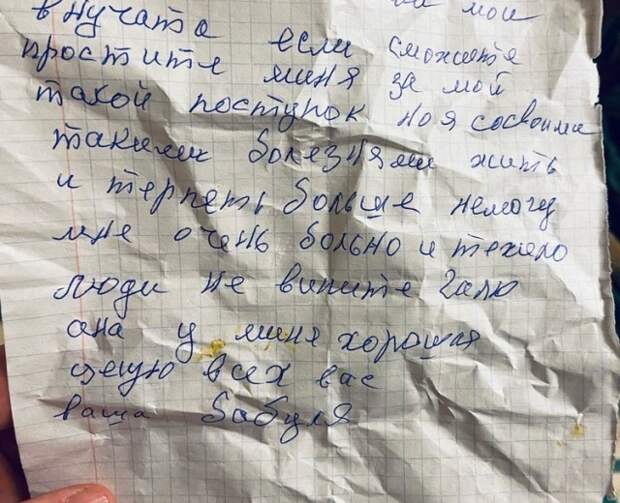 мои
внучата если сможите
простите миня за мой
такой поступок но я сосвоима
такими болезнями жить
и терпеть больше немогу
мне очень больно и тежило
люди не вините Галю
она у миня хорошая
целую всех вас
ваша бабуля